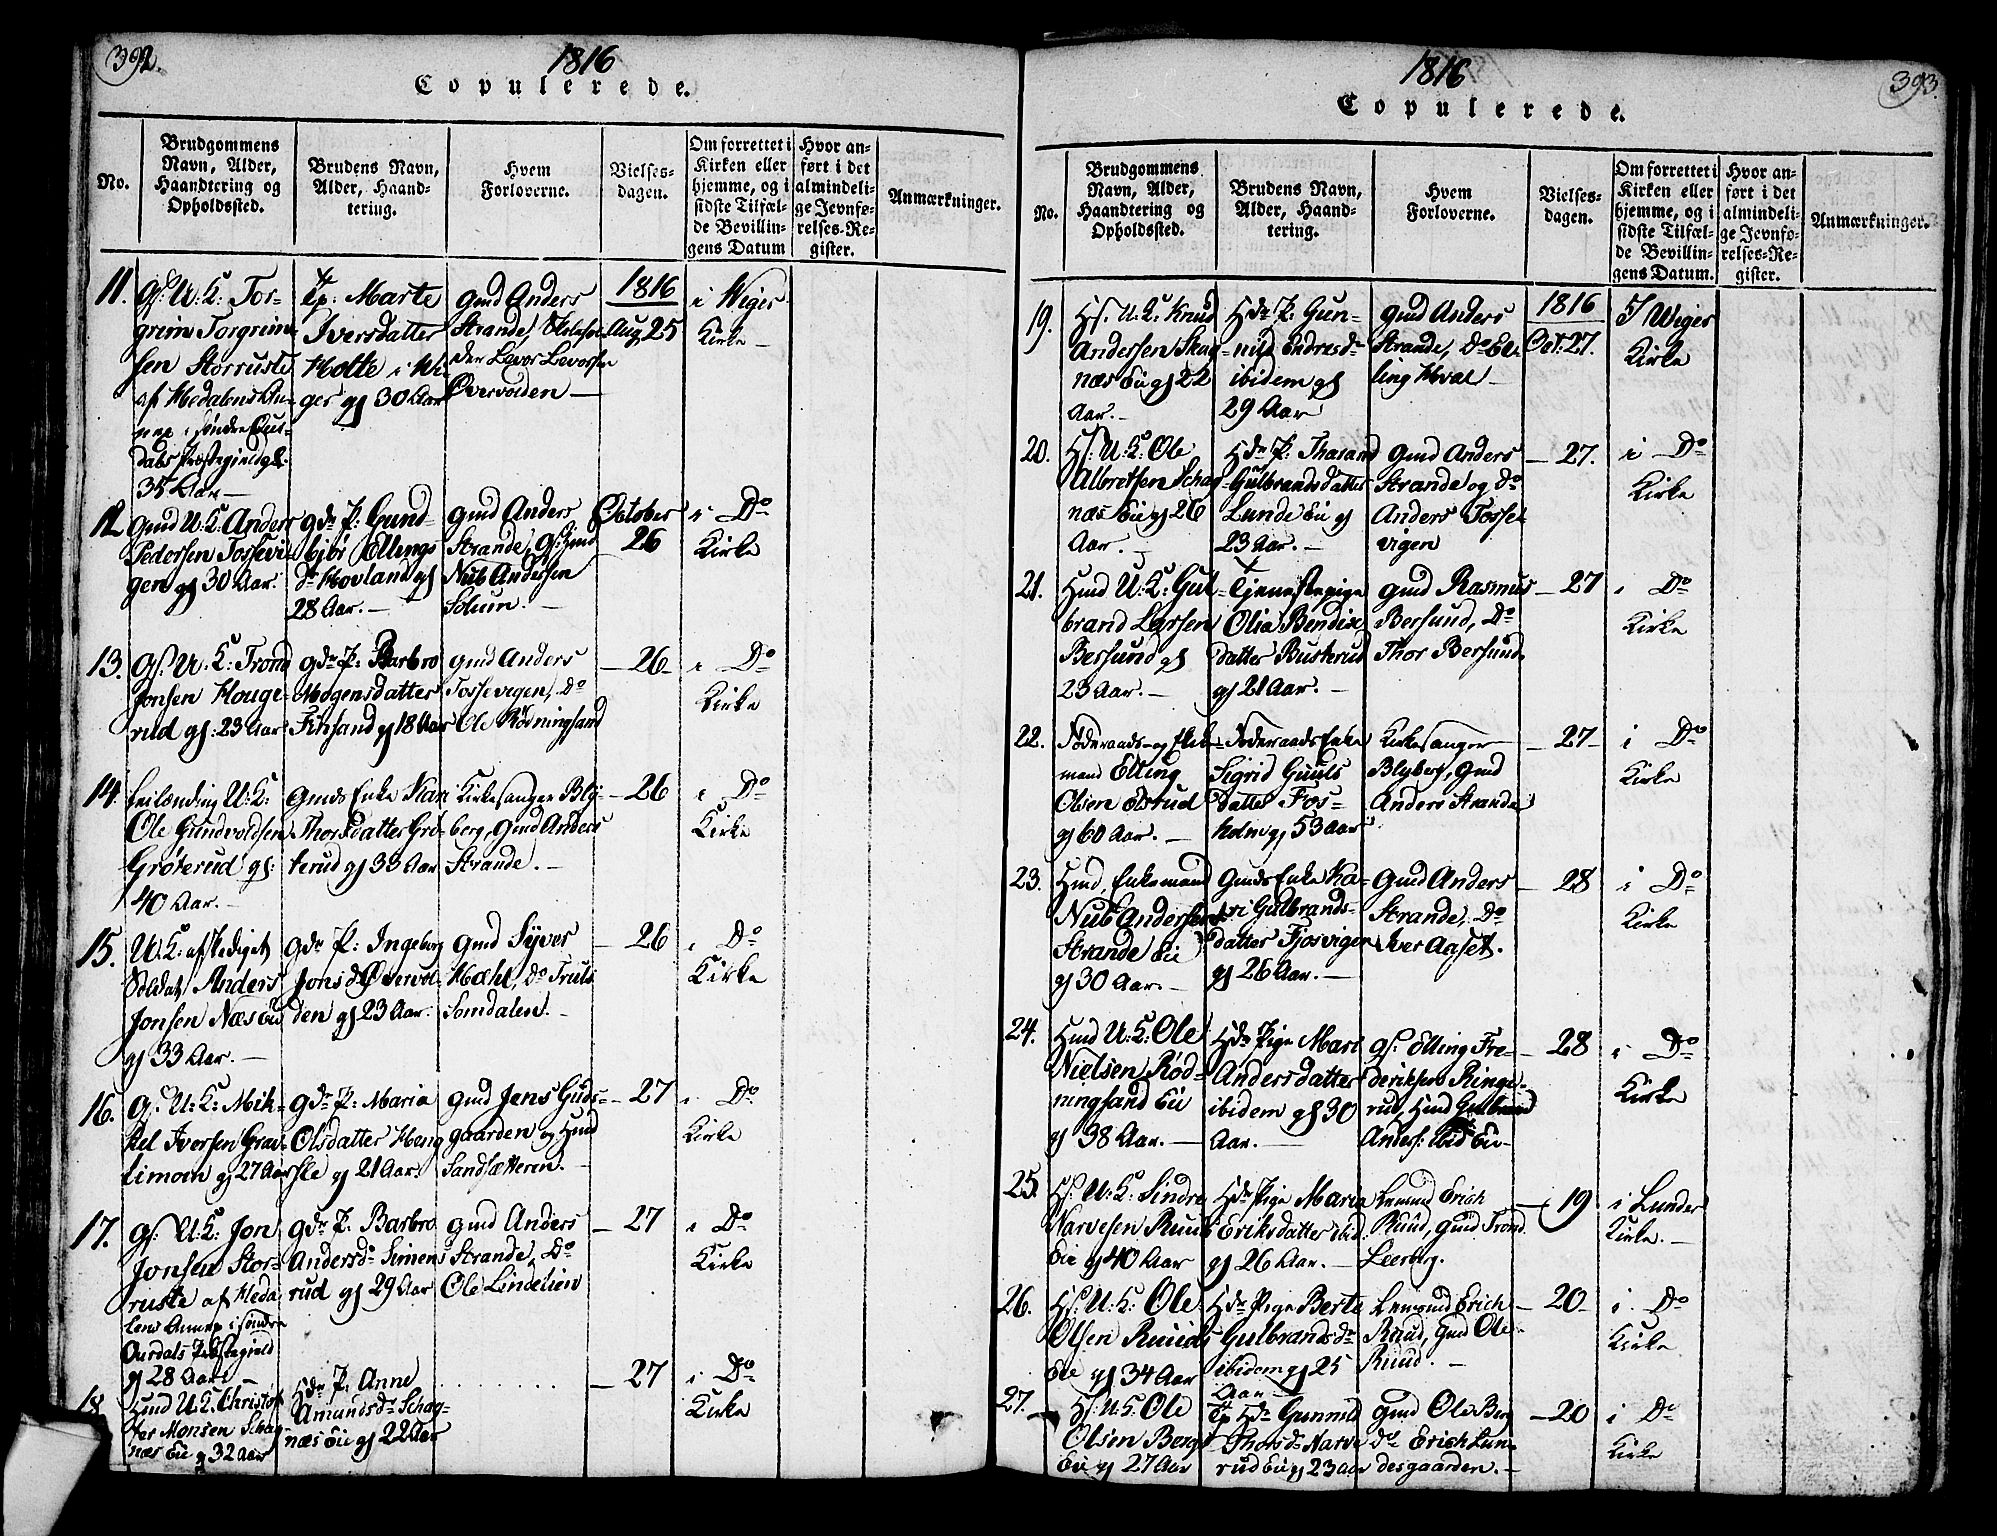 392.
1816
Copulerede.
No.
Brudgommens Navn, Alder, Haandtering og Opholdssted.
Brudens Navn, Alder, Haandtering.
Hvem Forloverne.
Vielsesdagen.
Om forrettet i Kirken eller hjemme, og i sidste Tilfælde Bevillingens Datum
Hvor anført i det almindelige Jevnførelses-Register.
Anmærkninger.
11.
Gs. U: K: Tor-
grim Torgrim-
sen Storruste
af Hedalens An-
nex i søndre Our-
dahls Præstegield gl.
35 Aar —
Tp: Marte
Iversdatter
Holte i Wi-
ger gl 30 Aar
Gmd Anders
Strande,
Levor Levorsen
Øvervolden —
1816
Aug. 25
i Wiger
Kirke —
12
Gmd U: K Anders
Pedersen Tossevi-
gen gl 30 Aar.
Gdr P: Gund-
bjør Ellings
dr Hovland gl
28 Aar. —
Gmd Anders
Strande, Gs: Gmd
Nub Andersen
Solum. —
October
26
i Do
Kirke
13.
Gs. U. K: Trond
Jonsen Houge-
rud gl: 23 Aar
Gdr P: Barbro
Mogensdatter
Finsand gl 18 Aar
Gmd Anders
Tossevigen, Do
Ole Rødningsand
— 26 —
i Do
Kirke
14.
U: K:
Ole Gundvoldsen
Grøterud gl:
40 Aar. —
Gmds Enke Kari
Thorsdatter Grø-
terud gl 33 Aar
Kirkesanger Bly-
berg, Gmd Anders
Strande. —
— 26
i Do
Kirke
15.
U: K: afskediget
Soldat Anders
Jonsen Næs Eie
gl 33 Aar. —
Gdr P: Ingeborg
Jonsd Øvervol-
den gl 23 Aar.
Gmd Syver
Mæhl, Do Truls
Somdalen. —
— 26
i Do
Kirke
16.
G. U: K: Mik-
kel Iversen Grav-
limoen gl 27 Aar
Gdr P: Maria
Olsdatter Heng
sle gl 21 Aar.
Gmd Jens Guds-
gaarden og Hmd
Sandsætteren. —
— 27
i Do
Kirke
17.
Gs. U: K Jon
Jonsen Stor-
ruste af Heda
lens Annex i søndre
Ourdals Præstegield
gl 28 Aar. —
Gdr P. Barbro
Andersdr Simens
rud gl 29 Aar
Gmd Anders
Strande, Do
Ole Lindelien
— 27
i Do
Kirke
18
Hmd U: K. Christof
fer Monsen Skag
næs Eie gl 32 Aar
Hdr P. Anne
Amundsdr Skag-
næs Eie gl 22 Aar
. . . . . . . . .
— 27
i Do
Kirke
393.
1816
Copulerede.
No.
Brudgommens Navn, Alder, Haandtering og Opholdssted.
Brudens Navn, Alder, Haandtering.
Hvem Forloverne.
Vielsesdagen.
Om forrettet i Kirken eller hjemme, og i sidste Tilfælde Bevillingens Datum.
Hvor anført i det almindelige Jevnførelses-Register.
Anmærkninger.
19.
Hs. U: K: Knud
Andersen Skag
næs Eie gl 22
Aar. —
Hdr P. Gun-
nild Endresdr
ibidem gl
29 Aar
Gmd Anders
Strande, Do El-
ling Hval —
1816
Oct. 27.
I Wiger
Kirke
20.
Hs: U: K: Ole
Albretsen Skag
næs Eie gl 26
Aar. —
Hdr P. Tharand
Gulbrandsdatter
Lunde Eie gl
23 Aar. —
Gmd Anders
Strande og Do
Anders Tosse
vigen
— 27.
i Do
Kirke
21.
Hmd U: K: Gul
brand Larsen
Bersund gl
23 Aar. —
Tjenestepige
Olia Bendix
datter Buskerud
gl 21 Aar. —
Gmd Rasmus
Bersund, Do
Thor Bersund.
— 27
i Do
Kirke
22.
Føderaads- og Enke-
mand Elling
Olsen Elsrud
gl 60 Aar. —
Føderaads Enke
Sigrid Guuls
datter Fos-
holm gl 53 Aar
Kirkesanger
Blyberg, Gmd
Anders Strande
— 27 —
i Do
Kirke
23.
Hmd, Enkemand
Nub Andersen
Strande Eie
gl 30 Aar. —
Gmds Enke Ka-
ri Gulbrands-
datter Fjosvigen
gl 26 Aar. —
Gmd Anders
Strande, Do
Iver Aaset.
— 28
i Do
Kirke
24.
Hmd U: K: Ole
Nielsen Rød-
ningsand Eie
gl 38 Aar. —
Hdr Pige Mari
Andersdatter
ibidem gl 30
Aar. —
Gs. Elling Fre-
deriksen Ringe-
rud, Hmd Gulbrand
Anders: ibid Eie —
— 28
i Do
Kirke
25.
Hs. U: K: Sindre
Narvesen Ruud
Eie gl 40 Aar
Hdr Pige Maria
Eriksdatter ibid
gl 26 Aar. —
Lensmd Erich
Ruud, Gmd Trond
Leerberg.
— 19
i Lunder
Kirke. —
26.
Hs. U: K: Ole
Olsen Ruuds
Eie gl 34 Aar
Hdr Pige Berte
Gulbrandsdr
ibidem gl 25
Aar —
Lensmd Erich
Ruud, Gmd Ole
Ruud. —
— 20 —
i Do
Kirke
27.
Hs. U: K: Ole
Olsen Bergs
Eie gl 27 Aar
Tp Hdr Gunnild
Thorsdr Narve
rud Eie gl 23 Aar
Gmd Ole Berg
Do Erich Lun-
desgaarden. —
— 20
i Do
Kirke